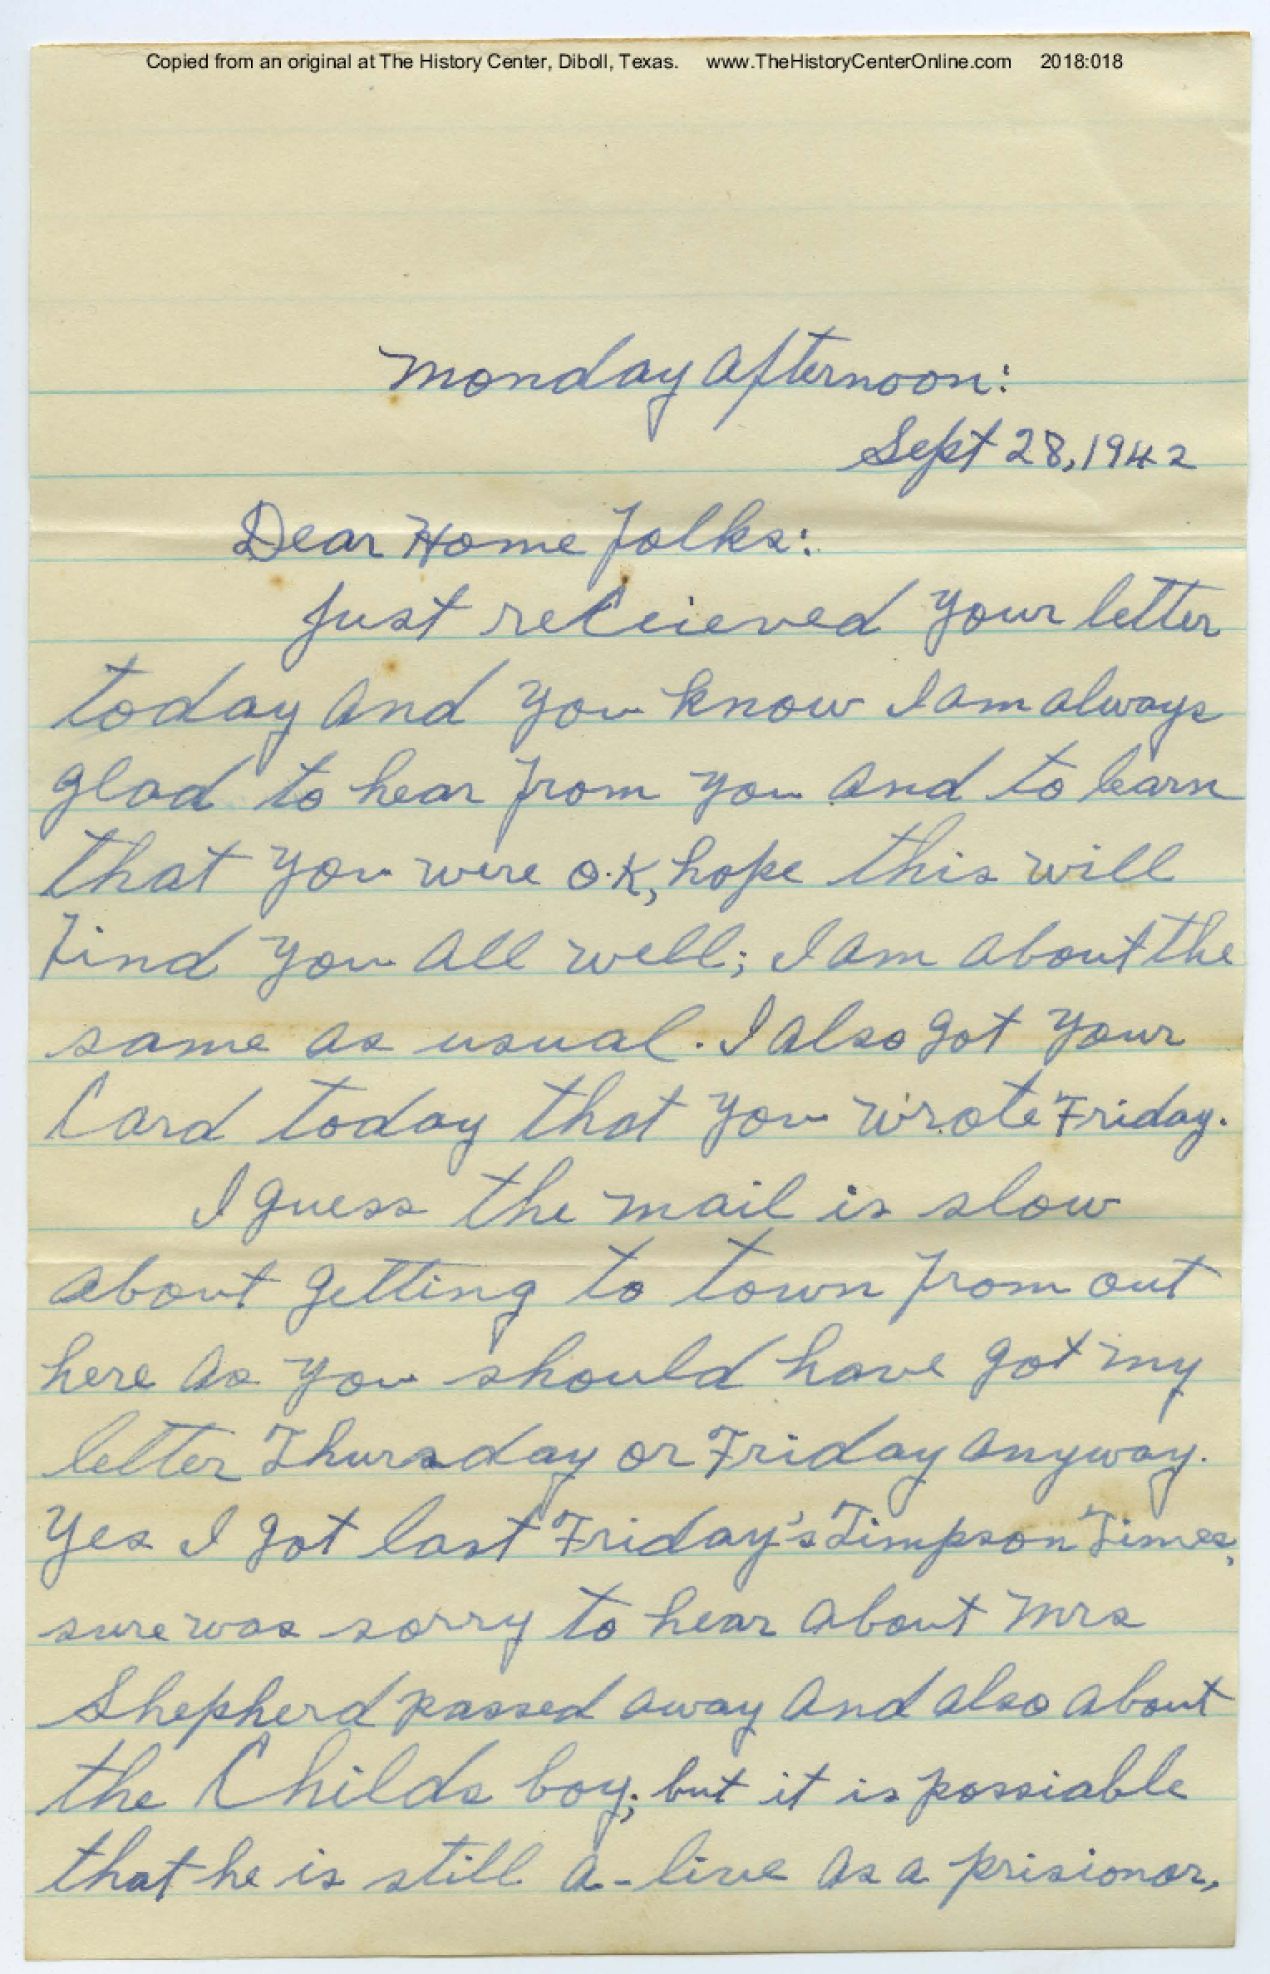 Copied from an original at The History Center, Diboll, Texas. www.TheHistoryCenterOnline.com 2018:018
Monday afternoon:
Sept 28, 1942
Dear Home Folks:
Just recieved your letter
today and you know I am always
glad to hear from you and to learn
that you were O.K, hope this will
find you all well; I am about the
same as usual. I also got your
Card today that you wrote Friday.
I guess the mail is slow
about getting to town from out
here as you should have got my
letter Thursday or Friday anyway.
Yes I got last Friday's Timpson Times,
sure was sorry to hear about Mrs
Shepherd passed away and also about
the Childs boy; but it is possiable
that he is still a-live as a prisionor,